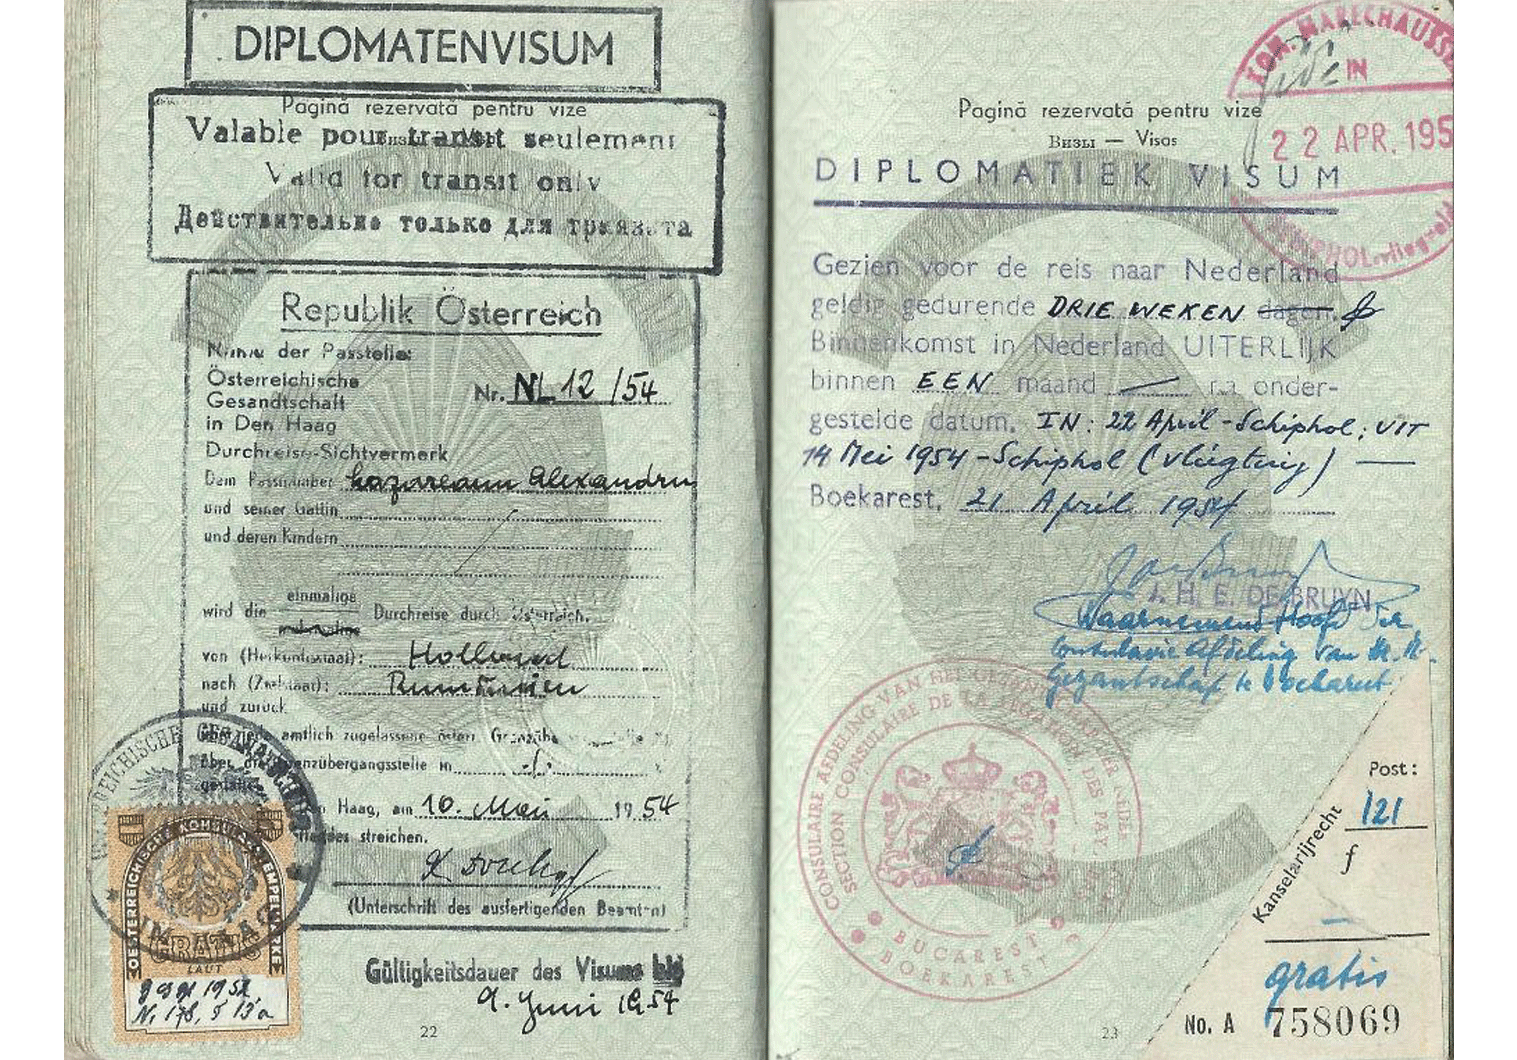 DIPLOMATENVISUM
Pagină rezervată pentru vize
Valable pour transit seulement
Valid for transit only
Действительно только для транзита
Republik Österreich
Name der Passtelle:
Österreichische
Gesandtschaft
in Den Haag
Nr. NL 12/54
Durchreise-Sichtvermerk
Dem Passinhaber Lazareanu Alexandru
und seiner Gattin
und deren Kindern
einmalige
wird die Durchreise durch Österreich,
von (Herkunftsstaat): Holland
nach (Zielstaat): Rumänien
und zurück
über jede amtlich zugelassene österr.
über die Grenzübergangsstelle in
Haag, am 10. Mai 1954
streichen.
(Unterschrift des ausfertigenden Beamten)
OESTERREICHISCHE KONSULARSTEMPELMARKE
GRATIS
LAUT
Gültigkeitsdauer des Visums bis
9. Juni 1954
22
Pagină rezervată pentru vize
Визы — Visas
KON. MARECHAUSSEE
IN
22 APR. 195
SCHIPHOL
DIPLOMATIEK VISUM
Gezien voor de reis naar Nederland
geldig gedurende DRIE WEKEN dagen.
Binnenkomst in Nederland UITERLIJK
binnen EEN maand na onder-
gestelde datum. IN: 22 April - Schiphol; UIT
14 Mei 1954 - Schiphol (vliegtuig)
Boekarest, 21 April 1954
J. H. E. DE BRUYN
Waarnemend Hoofd der
Consulaire Afdeling van Hr. M.
Gezantschap te Boekarest
CONSULAIRE AFDELING VAN HET GEZANTSCHAP DER NEDERL
SECTION CONSULAIRE DE LA LEGATION DES PAY
BUCAREST
BOEKAREST
Post:
121
Kanselarijrecht
f
gratis
No. A 758069
23